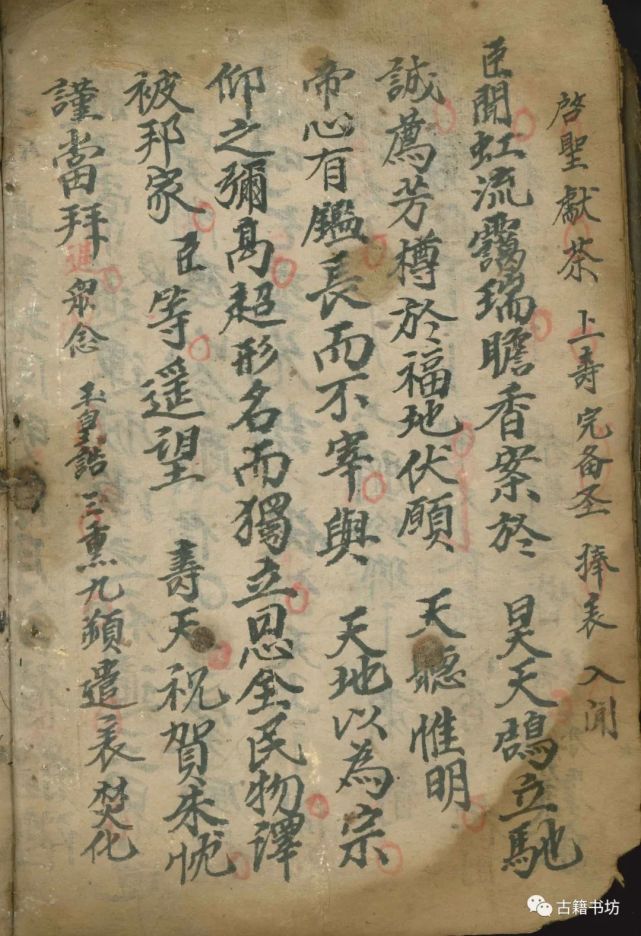 啓聖獻茶 上壽完备圣 捧表入闻
臣聞虹流靄瑞瞻香案於 昊天鵠立馳
誠薦芳樽於福地伏願 天聽惟明
帝心有鑑長而不宰與 天地以為宗
仰之彌高超形名而獨立恩全民物譯
被邦家 臣等遥望 壽天祝賀未忱
謹當拜進衆念 玉皇誥三熏九頓遣表焚化
古籍书坊